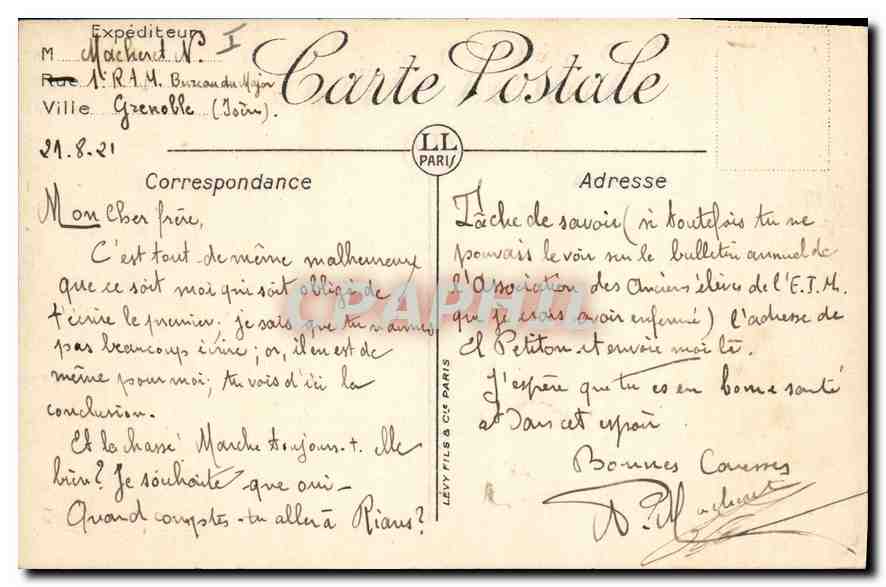 Expéditeur
M Macheret N. I
Rue 1er R.A.M. Bureau du Major
Ville Grenoble (Isère).
21.8.21
Carte Postale
LL
PARIS
Correspondance
Mon Cher frère,
C'est tout de même malheureux
que ce soit moi qui soit obligé de
t'écrire le premier; je sais que tu n'aimes
pas beaucoup écrire; or, il en est de
même pour moi; tu vois d'ici la
conclusion.
Et la chasse! Marche toujours-t-elle
bien? Je souhaite que oui-
Quand comptes-tu aller à Rians?
LÉVY FILS & Cie PARIS
Adresse
Tâche de savoir (si toutefois tu ne
pouvais le voir sur le bulletin annuel de
l'Association des Anciens élèves de l'E.I.M.
que je crois avoir enfermé) l'adresse de
El Petiton et envoie moi là.
J'espère que tu es en bonne santé
et dans cet espoir
Bonnes Caresses
N. Macheret
CPAPHIL